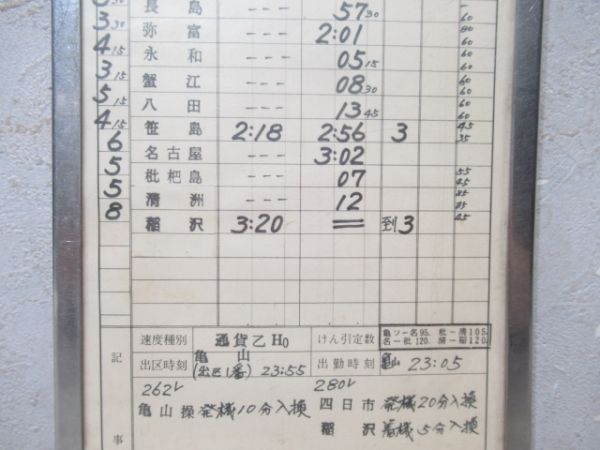 3 30 長島 --- 57 30
3 30 弥富 --- 2:01 60 80
4 15 永和 --- 05 15 60
3 15 蟹江 --- 08 30 60
5 15 八田 --- 13 45 60
4 15 笹島 2:18 2:56 3 45 35
6 名古屋 --- 3:02
5 枇杷島 --- 07 55 45
5 清洲 --- 12 35
8 稲沢 3:20 == 到3 45
速度種別 通貨乙H0 けん引定数 亀ツー名95. 枇ー清105. 名ー枇120. 清ー稲120.
出区時刻 亀山(出区1番) 23:55 出勤時刻 亀山 23:05
記事
262レ 280レ
亀山操発機10分入換 四日市発機20分入換
稲沢着機5分入換